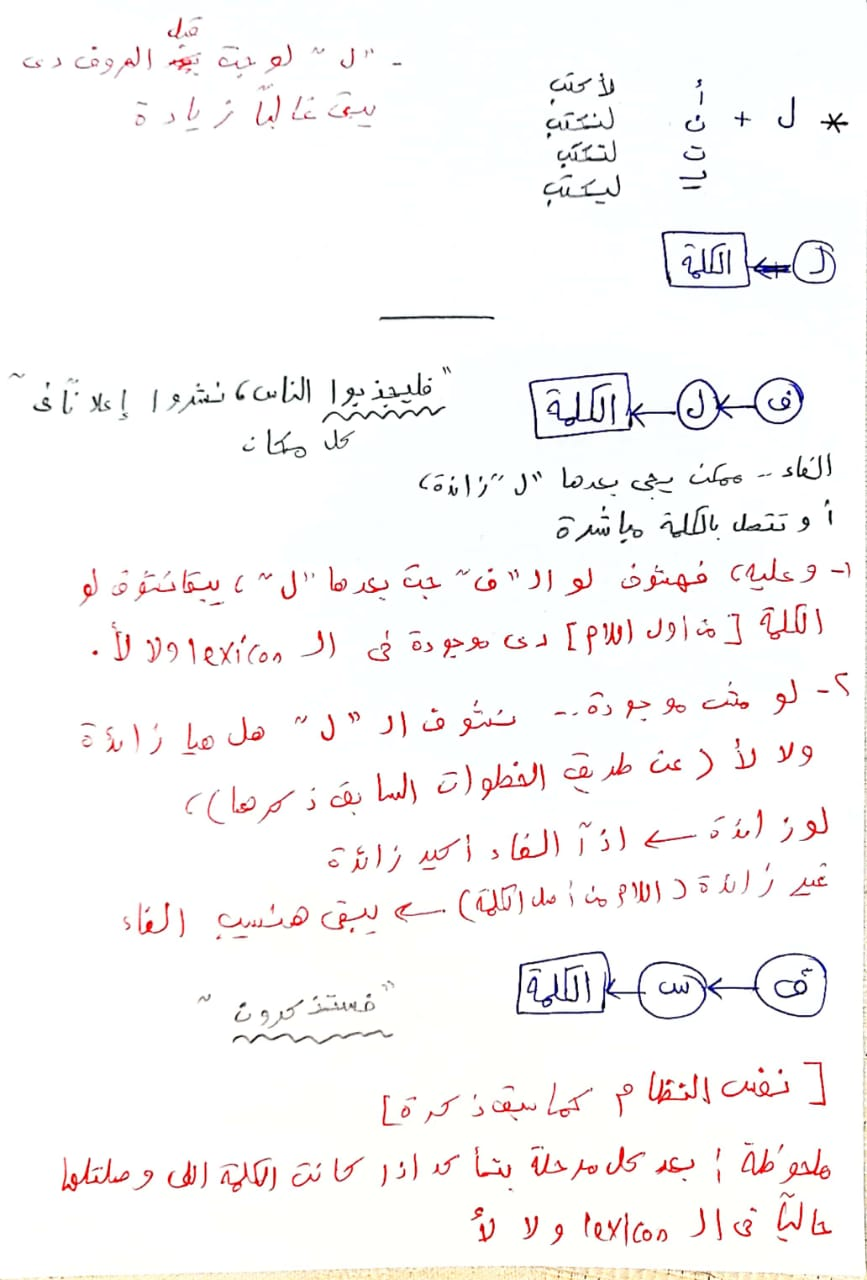 * ل + أ ن ت يـ
لأكتب
لنكتب
لتكتب
ليكتب
- "ل" لو جت قبل الحروف دى
يبقى غالباً زيادة
ل ← الكلمة
ف ← ل ← الكلمة
"فليجذبوا الناس، نشروا إعلاناً فى
كل مكان"
الفاء .. ممكن يجى بعدها "ل" زائدة،
أو تتصل بالكلمة مباشرة
١- وعليه، فهنشوف لو الـ "ف" جت بعدها "ل"، يبقا نشوف لو
الكلمة [من اول اللام] دى موجودة فى الـ lexicon ولا لأ.
٢- لو مش موجودة .. نشوف الـ "ل" هل هيا زائدة
ولا لأ (عن طريق الخطوات السابق ذكرها)،
لو زائدة ← اذاً الفاء أكيد زائدة
غير زائدة (اللام من أصل الكلمة) ← يبقى هنسيب الفاء
ف ← س ← الكلمة
"فستذكرون"
[نفس النظام كما سبق ذكرة]
ملحوظة: بعد كل مرحلة بتأكد اذا كانت الكلمة اللى وصلتلها
حالياً فى الـ lexicon ولا لأ